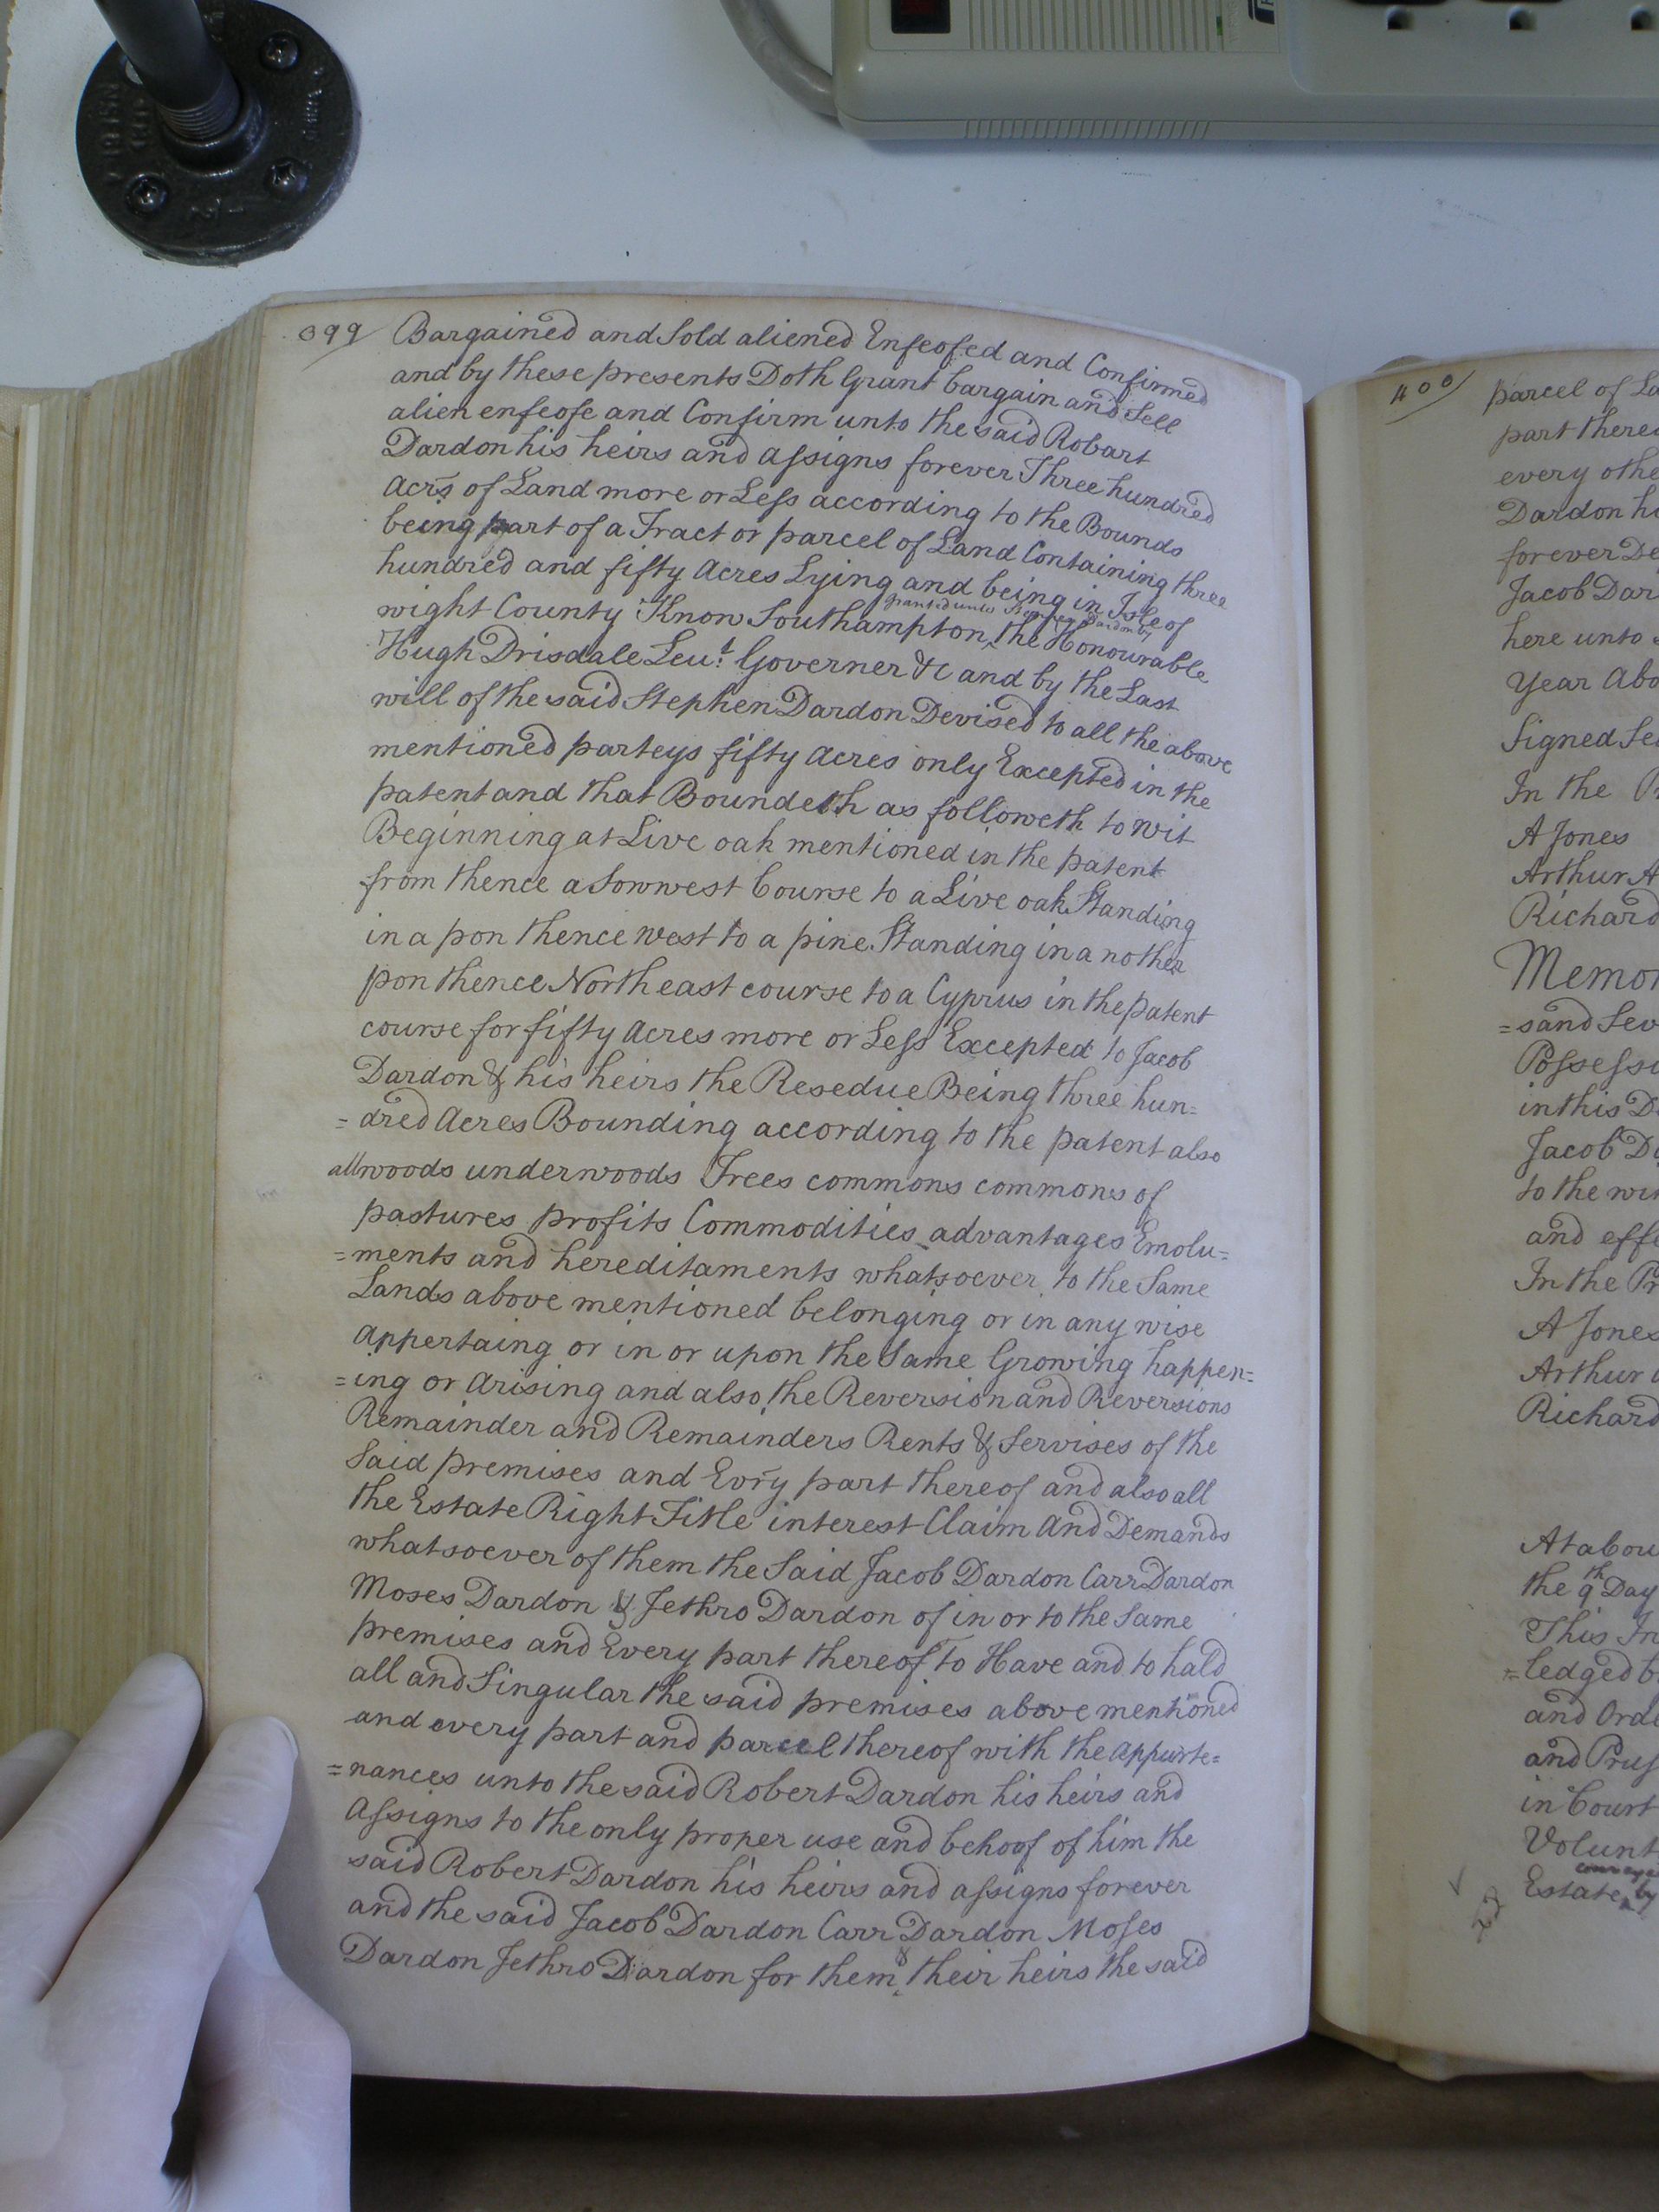 399
Bargained and Sold aliened Enfeofed and Confirmed
and by these presents Doth Grant bargain and Sell
alien enfeofe and Confirm unto the said Robart
Dardon his heirs and assigns forever Three hundred
Acrs of Land more or Less according to the Bounds
being part of a Tract or parcel of Land Containing three
hundred and fifty Acres Lying and being in Isle of
granted unto Stephen Dardon by
wight County Know Southampton ‸ the Honourable
Hugh Drisdale Leut Governer &c and by the Last
will of the said Stephen Dardon Devised to all the above
mentioned parteys fifty Acres only Excepted in the
patent and that Boundeth as followeth to wit
Beginning at Live oak mentioned in the patent
from thence a Sowwest Course to a Live oak Standing
in a pon thence west to a pine Standing in a nother
pon thence North east course to a Cyprus in the patent
course for fifty Acres more or Less Excepted to Jacob
Dardon & his heirs the Resedue Being three hun=
=dred Acres Bounding according to the patent also
all woods underwoods Trees commons commons of
pastures profits Commodities advantages Emolu=
=ments and hereditaments whatsoever to the Same
Lands above mentioned belonging or in any wise
Appertaing or in or upon the Same Growing happen=
=ing or Arising and also the Reversion and Reversions
Remainder and Remainders Rents & Servises of the
Said premises and Evry part thereof and also all
the Estate Right Title interest Claim And Demands
whatsoever of them the Said Jacob Dardon Carr Dardon
Moses Dardon & Jethro Dardon of in or to the Same
premises and Every part thereof to Have and to hald
all and Singular the said premises above mentioned
and every part and parcel thereof with the Appurte=
=nances unto the said Robert Dardon his heirs and
Assigns to the only proper use and behoof of him the
said Robert Dardon his heirs and assigns forever
and the said Jacob Dardon Carr Dardon Moses
Dardon Jethro Dardon for them ‸& their heirs the said
400
parcel of
part
every
Dardon
forever
Jacob
here unto
Year
Signed
In the
A Jones
Arthur
Richard
=sand
in this
Jacob
to the
and
In the
A Jones
Arthur
Richard
At a
the 9th Day
This
=ledged
and
and
in Court
Estate ‸ by